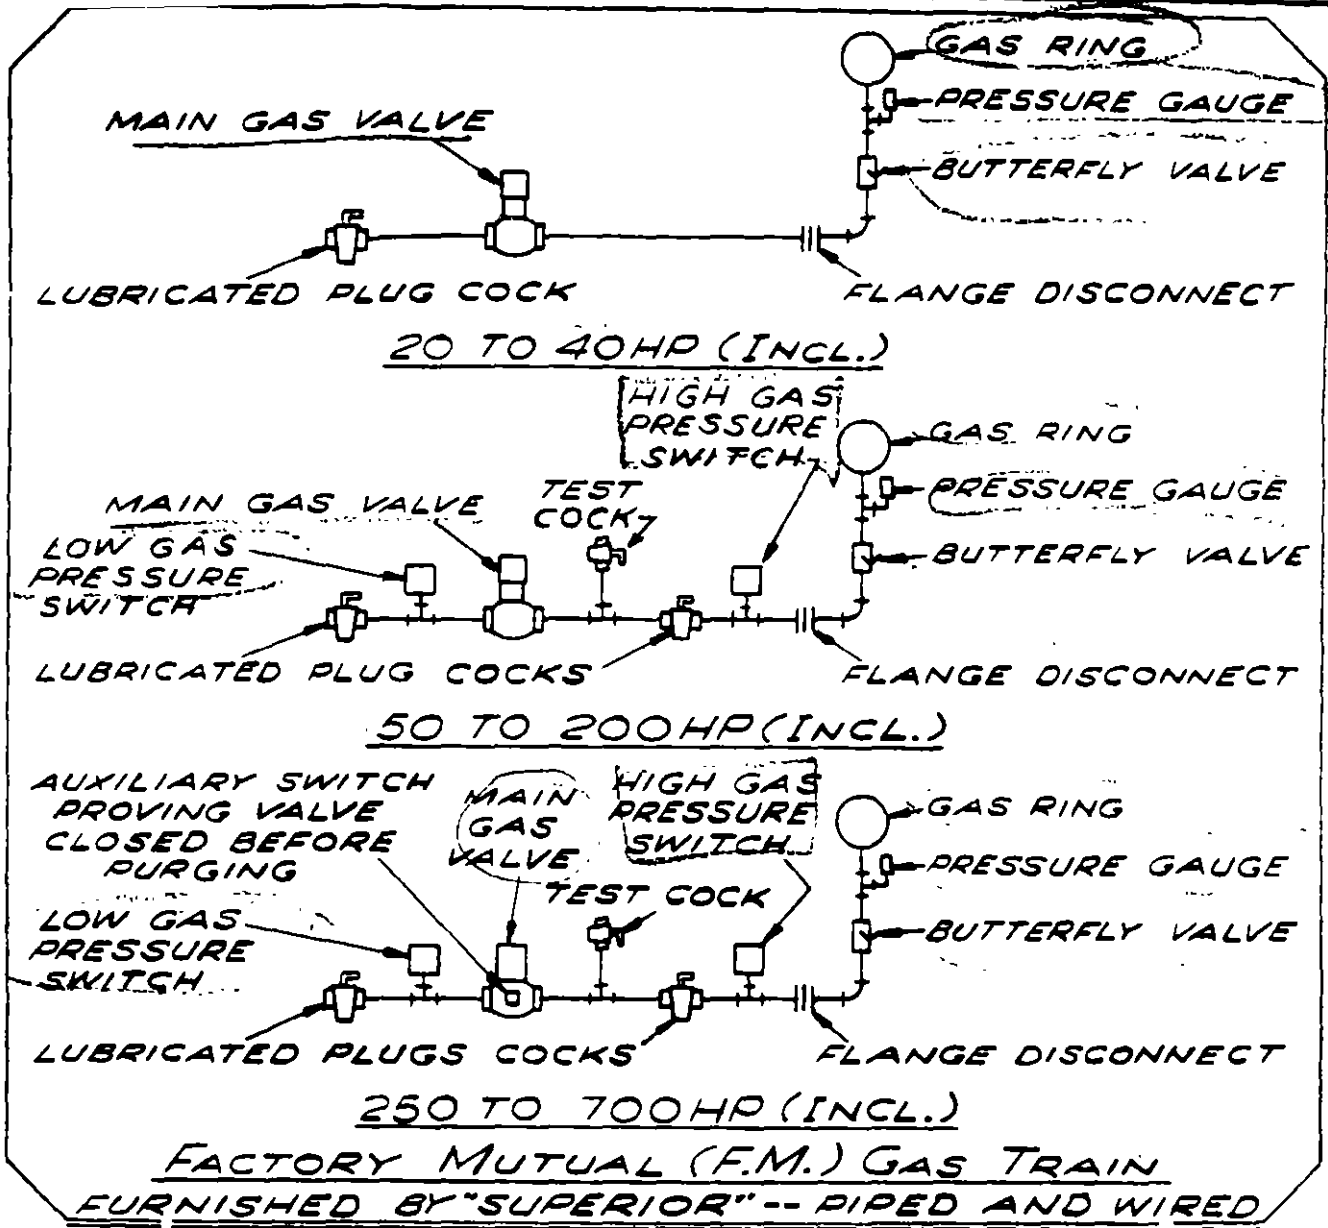 GAS RING
PRESSURE GAUGE
MAIN GAS VALVE
BUTTERFLY VALVE
LUBRICATED PLUG COCK
FLANGE DISCONNECT
20 TO 40 HP (INCL.)
HIGH GAS
PRESSURE
SWITCH
GAS RING
TEST
COCK
PRESSURE GAUGE
MAIN GAS VALVE
LOW GAS
PRESSURE
SWITCH
BUTTERFLY VALVE
LUBRICATED PLUG COCKS
FLANGE DISCONNECT
50 TO 200 HP (INCL.)
AUXILIARY SWITCH
PROVING VALVE
CLOSED BEFORE
PURGING
MAIN
GAS
VALVE
HIGH GAS
PRESSURE
SWITCH
GAS RING
PRESSURE GAUGE
TEST COCK
LOW GAS
PRESSURE
SWITCH
BUTTERFLY VALVE
LUBRICATED PLUGS COCKS
FLANGE DISCONNECT
250 TO 700 HP (INCL.)
FACTORY MUTUAL (F.M.) GAS TRAIN
FURNISHED BY "SUPERIOR" -- PIPED AND WIRED